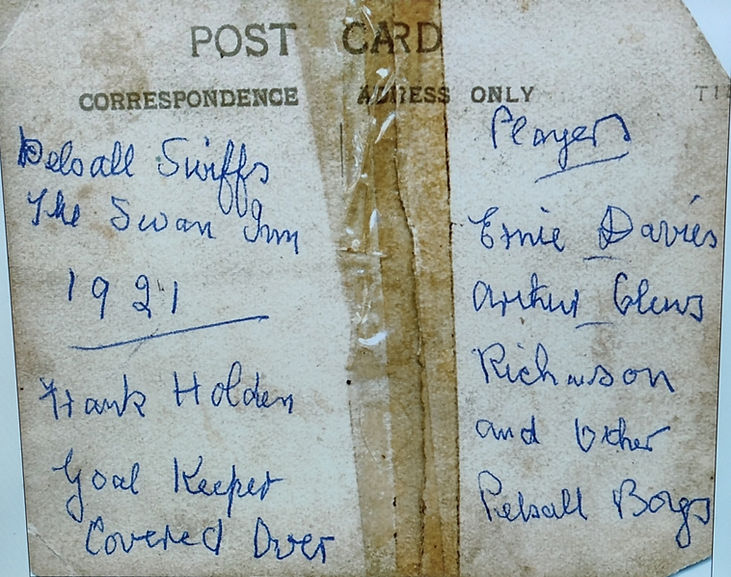 POST CARD
CORRESPONDENCE ADRESS ONLY
Pelsall Swiffs
The Swan Inn
1921
Frank Holden
Goal Keeper
Covered Over
Players
Ernie Davies
Arthur Clews
Richardson
and Other
Pelsall Boys